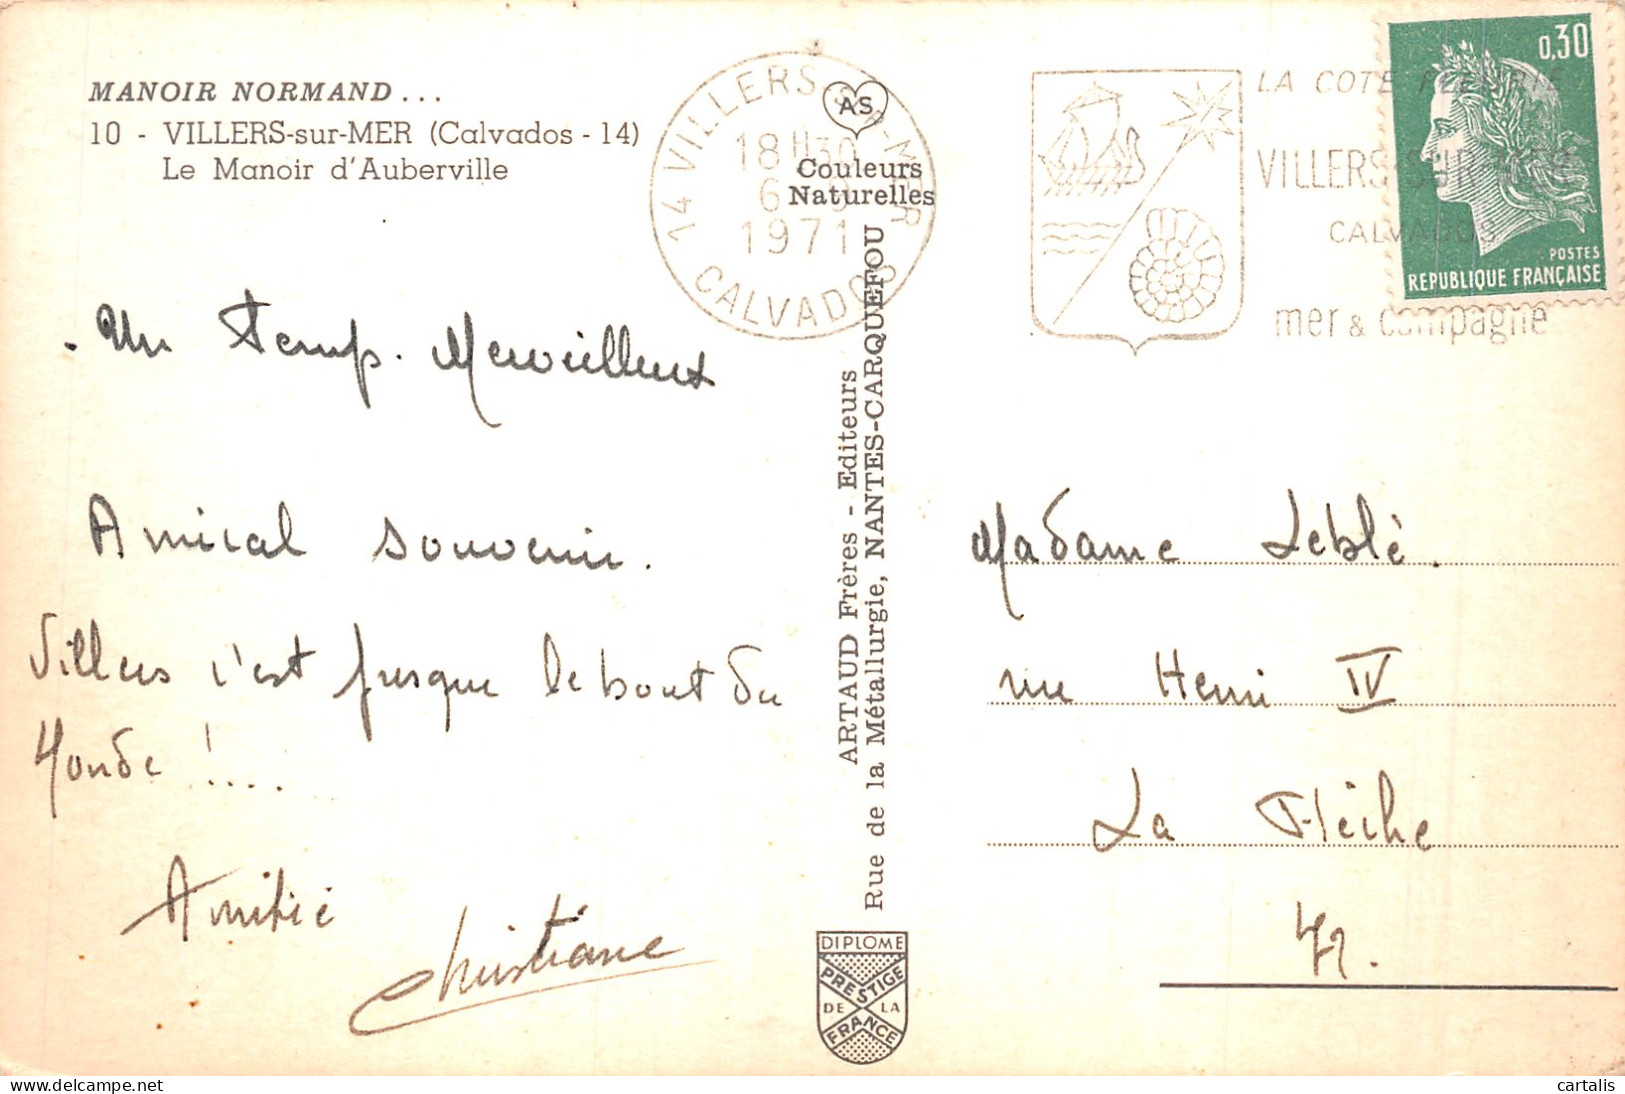 MANOIR NORMAND ...
10 - VILLERS-sur-MER (Calvados - 14)
Le Manoir d'Auberville
14 VILLERS-SUR-MER
18H30
6
1971
CALVADOS
AS
Couleurs
Naturelles
LA COTE FLEURIE
VILLERS-SUR-MER
CALVADOS
mer & campagne
0,30
POSTES
REPUBLIQUE FRANÇAISE
. Un temps. Merveilleux
Amical souvenir.
Villers c'est presque le bout du
Monde !....
Amitié
Christiane
ARTAUD Frères - Editeurs
Rue de la Métallurgie, NANTES-CARQUEFOU
DIPLOME
PRESTIGE
DE LA
FRANCE
Madame Leblé.
rue Henri IV
La Flèche
72.
delcampe.net
cartalis